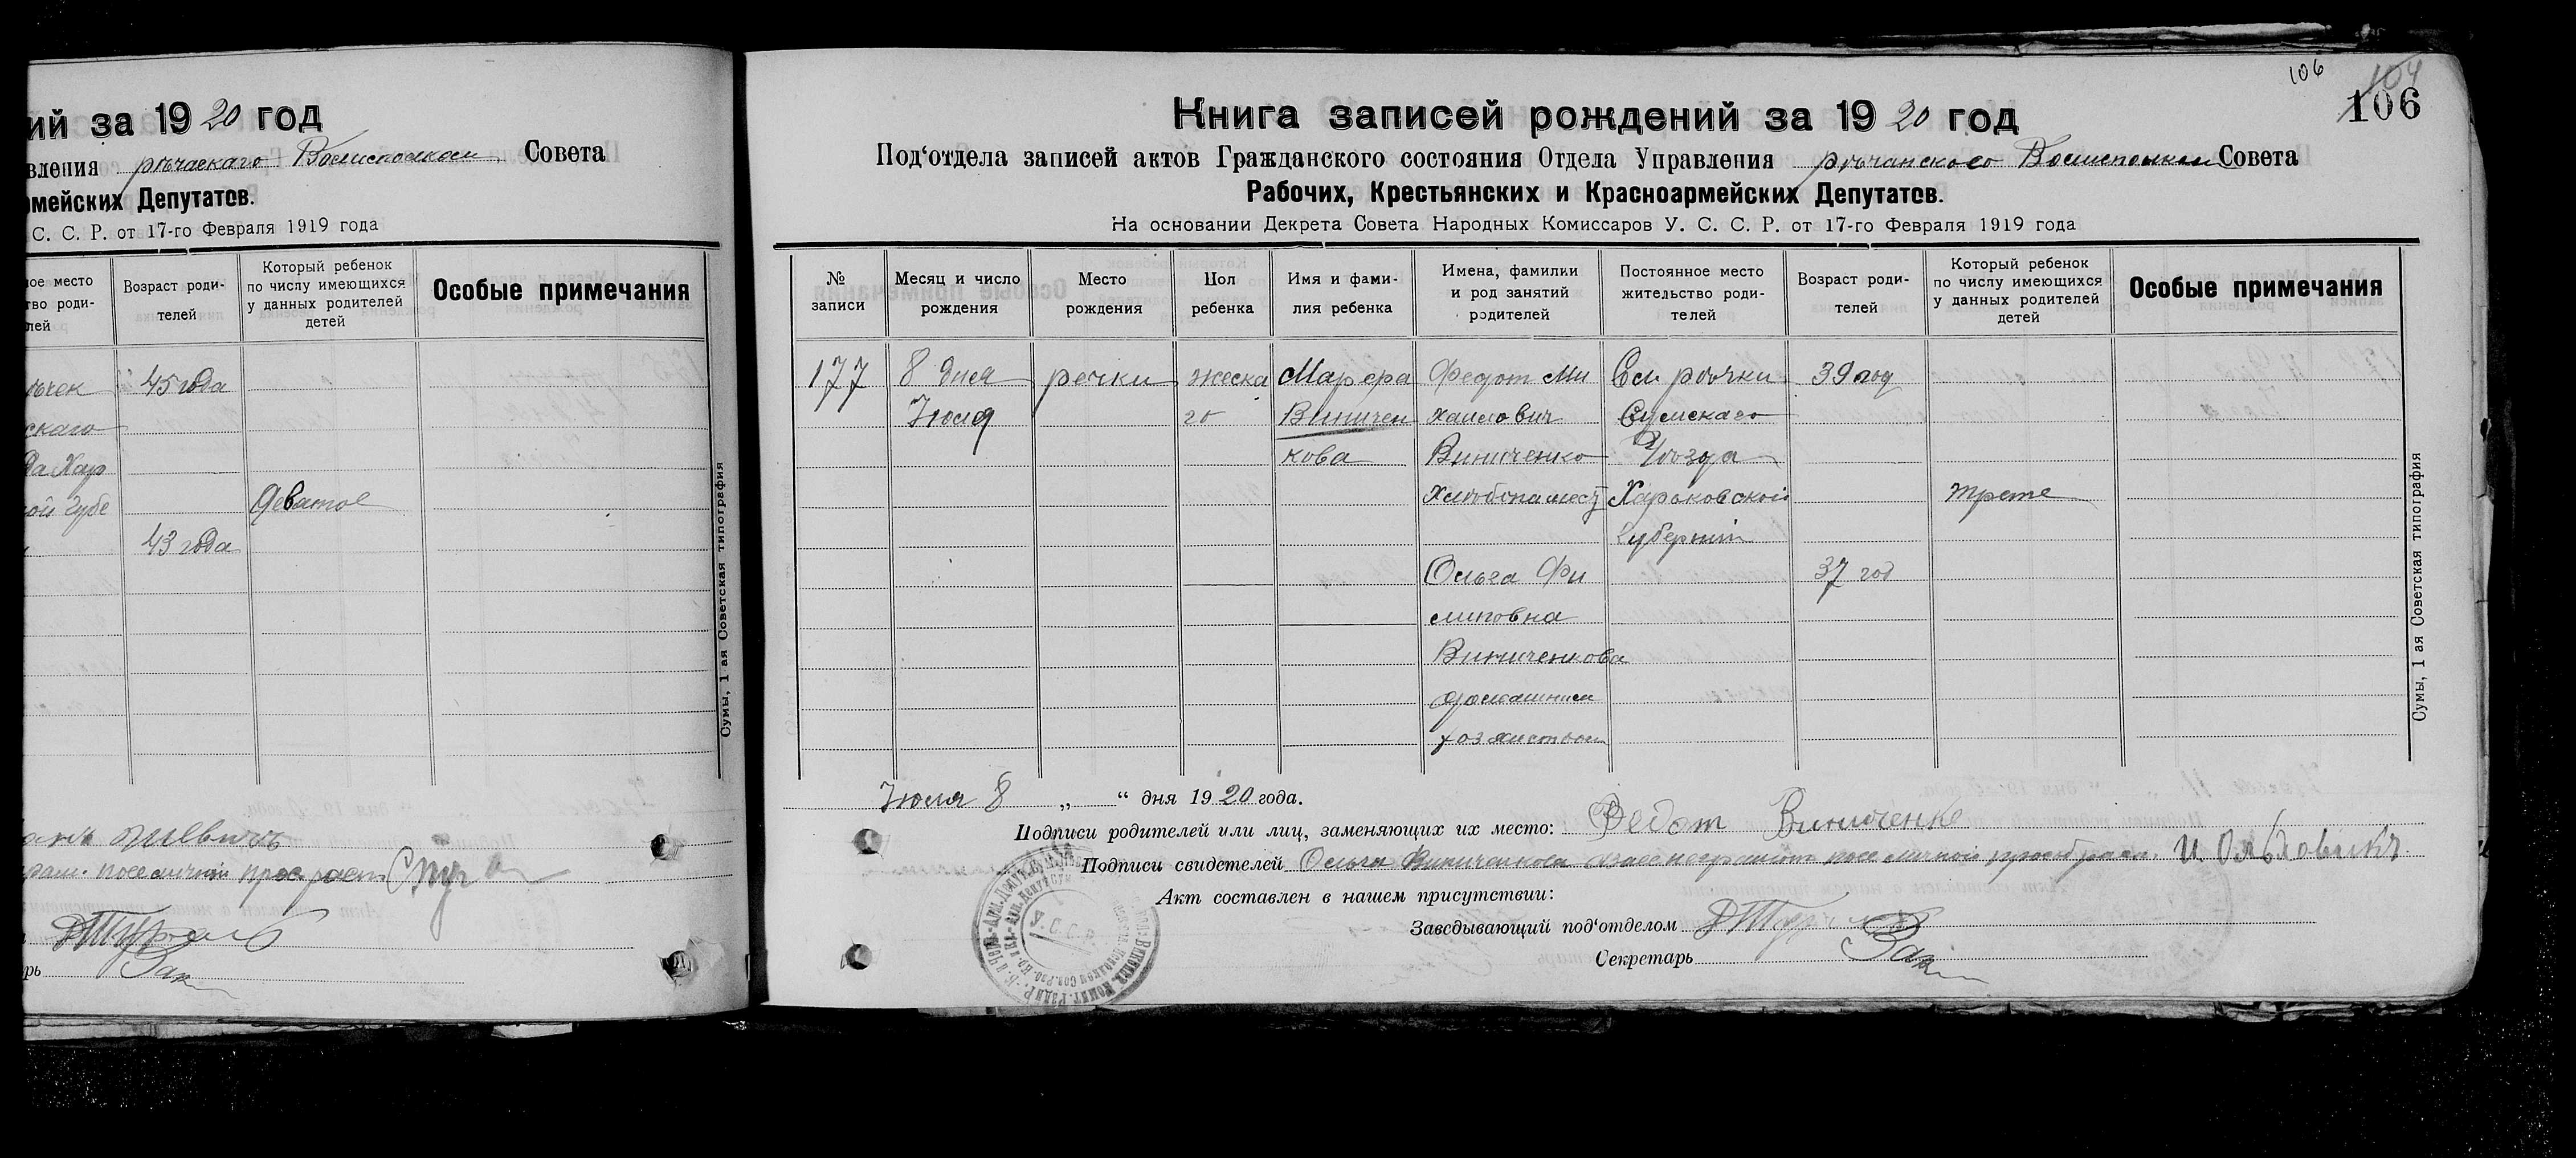 ий за 1920 год
вления рѣчаскаго Волисполком Совета
рмейских Депутатов.
С. С. Р. от 17-го Февраля 1919 года
ное место
тво роди-
лей
Возраст роди-
телей
Который ребенок
по числу имеющихся
у данных родителей
детей
Особые примечания
ѣчек 45 года
скаго
да Хар
ой Губе Девятое
43 года
Сумы, 1 ая Советская типография
106
104
106
Книга записей рождений за 1920 год
Под‘отдела записей актов Гражданского состояния Отдела Управления рѣчанского Волисполком Совета
Рабочих, Крестьянских и Красноармейских Депутатсв.
На основании Декрета Совета Народных Комиссаров У. С. С. Р. от 17-го Февраля 1919 года
№
записи
Месяц и число
рождения
Место
рождения
Пол
ребенка
Имя и фами-
лия ребенка
Имена, фамилки
и род занятий
родителей
Постоянное место
жительство роди-
телей
Возраст роди-
телей
Который ребенок
по числу имеющихся
у данных родителей
детей
Особые примечания
177 8 дня речки жеска Федот Ми Сл рѣчки 39 год
Июля го Виничен хаилович Сумскаго
кова Виниченко Уѣзда
Харьковской трете
Губернiи
Ольга Фи 37 год
липовна
Виниченкова
домашним
хозяиством
Сумы, 1 ая Советская типография
Июля 8 „ “ дня 1920 года.
Подписи родителей или лиц, заменяющих их место: Федот Виниченко
Подписи свидетелей Ольги Виниченкова
Акт составлен в нашем присутствии:
Заведывающий под‘отделом
Секретарь
У. С. С. Р.